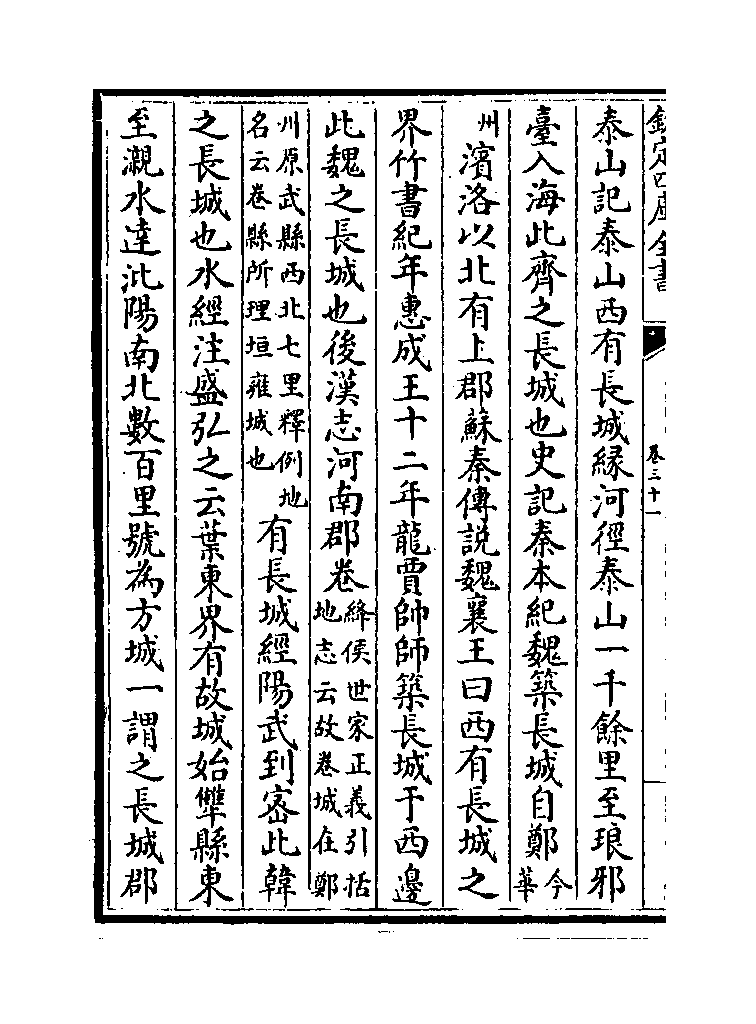 欽定四庫全書
卷三十一
泰山記泰山西有長城緣河徑泰山一千餘里至琅邪
臺入海此齊之長城也史記秦本紀魏築長城自鄭今華
州濱洛以北有上郡蘇秦傳說魏襄王曰西有長城之
界竹書紀年惠成王十二年龍賈帥師築長城于西邊
此魏之長城也後漢志河南郡卷絳侯世家正義引括地志云故卷城在鄭
州原武縣西北七里釋例地名云卷縣所理垣雍城也有長城經陽武到密此韓
之長城也水經注盛弘之云葉東界有故城始犨縣東
至瀙水達沘陽南北數百里號為方城一謂之長城郡